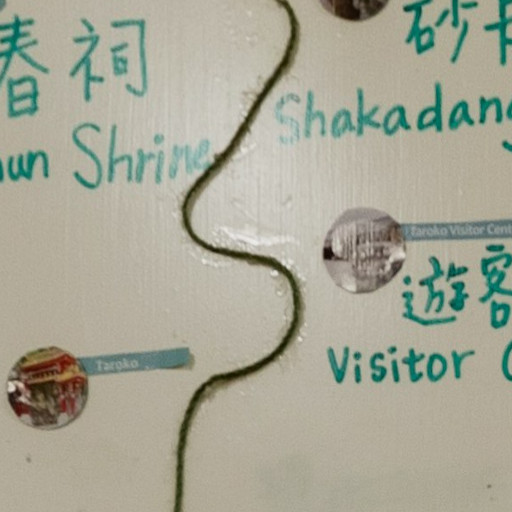 春祠
Shrine
砂卡
Shakadang
Taroko Visitor Cent
遊客
Visitor C
Taroko